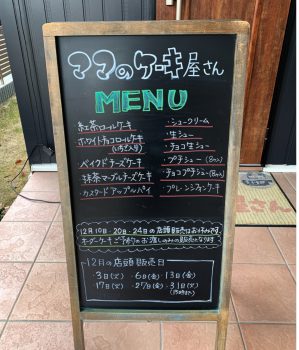 ママのケーキ屋さん
MENU
紅茶ロールケーキ
ホワイトチョコロールケーキ
(いちご入り)
ベイクドチーズケーキ
抹茶マーブルチーズケーキ
カスタードアップルパイ
・シュークリーム
・生シュー
・チョコ生シュー
・プチシュー(8コ入)
・チョコプチシュー(8コ入)
・フレンジシィケーキ
12月19日・20日・24日の店頭販売はお休みです。
オーダーケーキ ご予約のお渡しのみの販売になります
12月の店頭販売日
・3日(火)・6日(金)・13日(金)
・17日(火)・27日(金)・31日(火)
屋さん